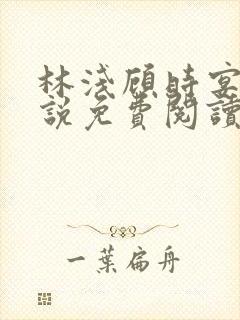 林淺顧時宴
說免費閱讀
一葉扁舟